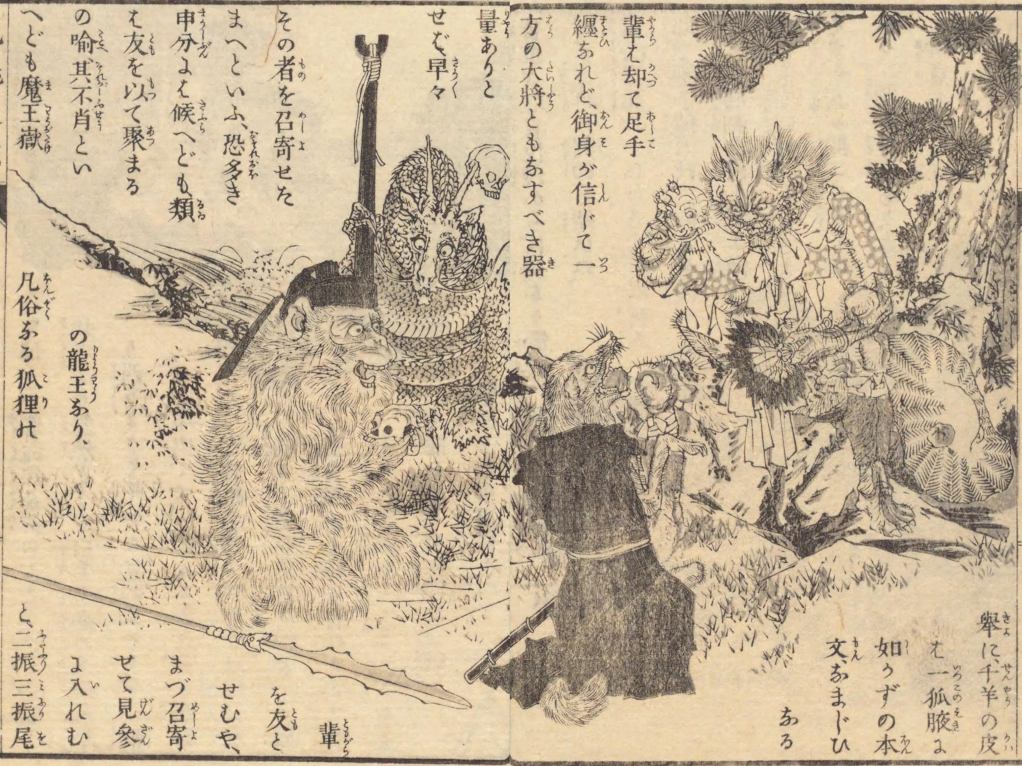 擧に千羊の皮
は一狐腋に
如かずの本
文なまじひ
なる
輩は却て足手
纏なれど、御身が信じて一
方の大將ともなすべき器
量ありと
せば、早々
その者を召寄せた
まへといふ、恐多き
申分には候へども、類
は友を以て聚まる
の喩、其不肖とい
へども魔王嶽
の龍王なり、
凡俗なる狐狸の
輩
を友と
せむや、
まづ召寄
せて見參
に入れむ
と、二振三振尾